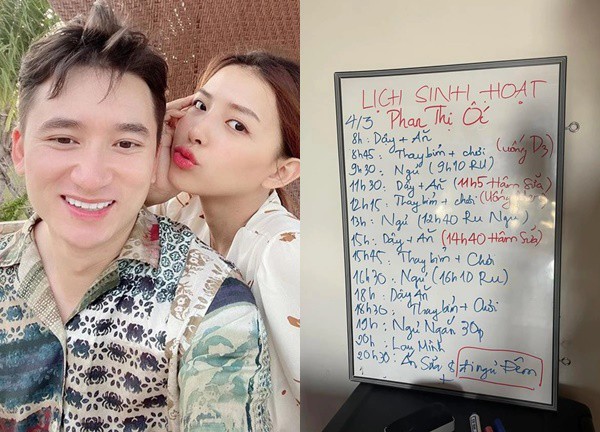 LỊCH SINH HOẠT
4/3: Phan Thị Ốc
8h: Dậy + Ăn
8h45: Thay bỉm + chơi (uống D3)
9h30: Ngủ (9h10 RU)
11h30: Dậy + Ăn (11h5 Hâm Sữa)
12h15: Thay bỉm + chơi (Uống
13h: Ngủ (12h40 Ru Ngủ)
15h: Dậy + Ăn (14h40 Hâm Sữa)
15h45: Thay bỉm + Chơi
16h30: Ngủ (16h10 RU)
18h: Dậy Ăn
18h30: Thay bỉm + Chơi
19h: Ngủ Ngắn 30p
20h: Lau Mình
20h30: Ăn Sữa & đi ngủ Đêm